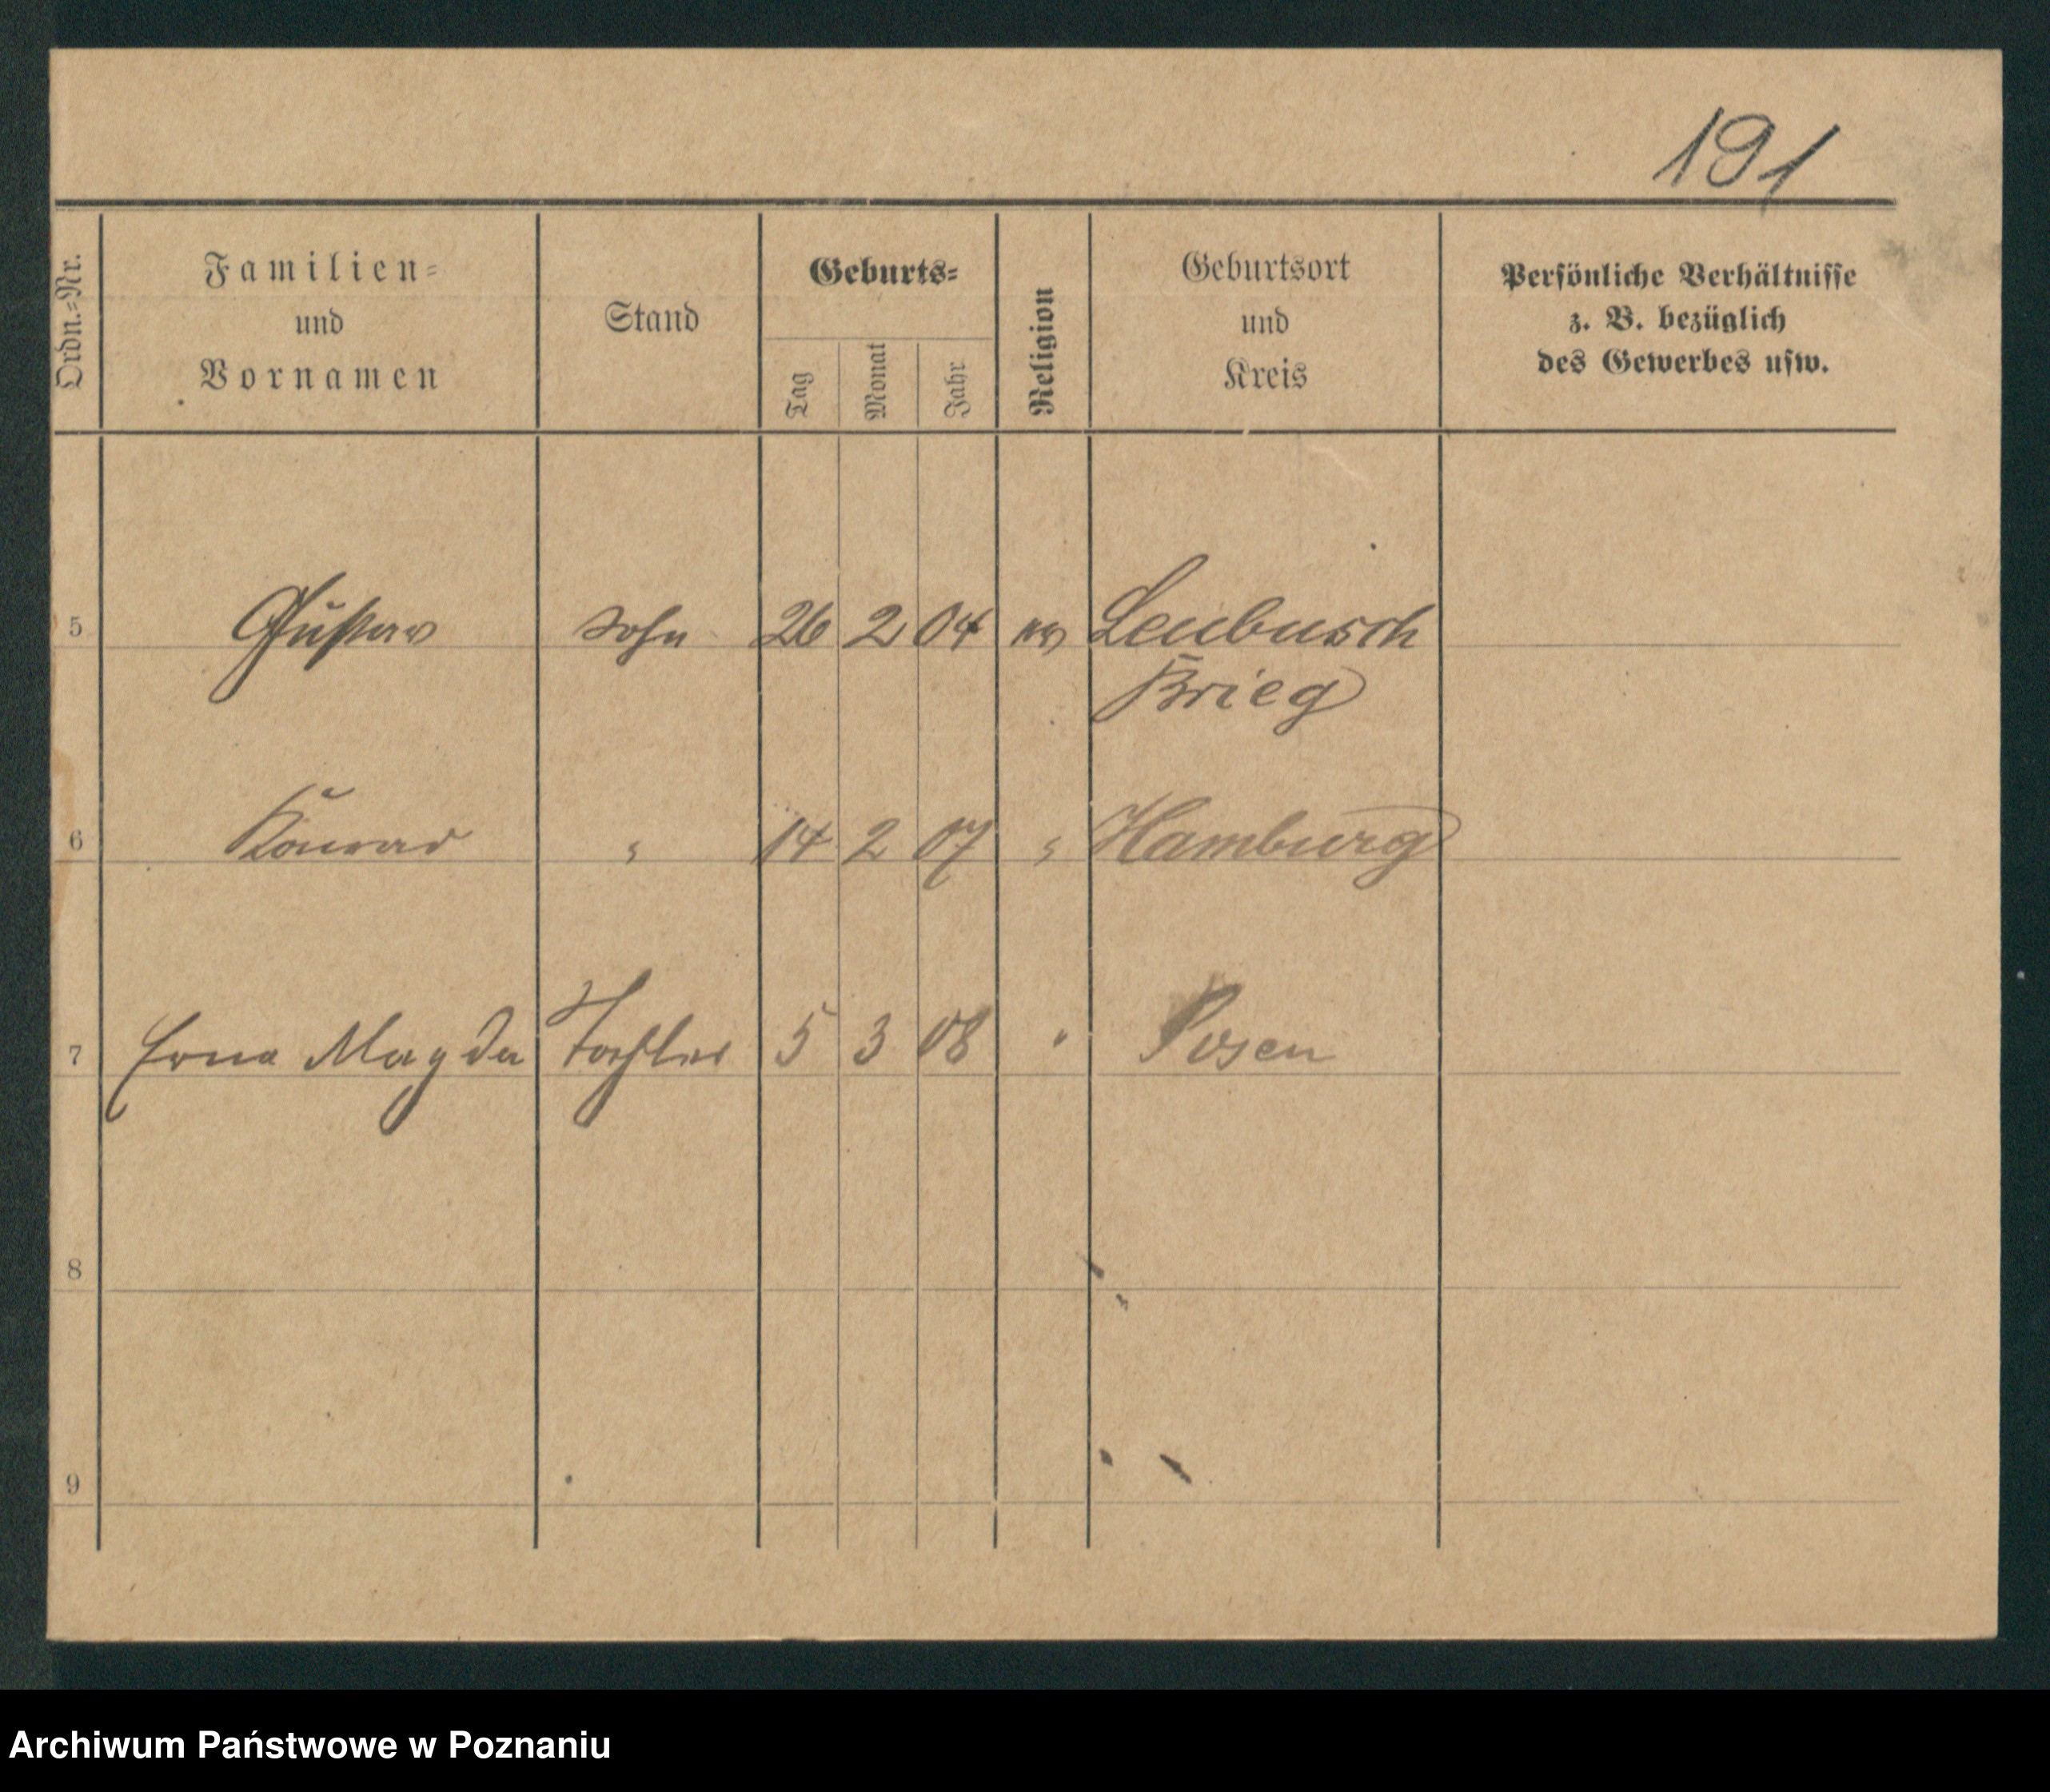 191
Ordn.-Nr.
Familien-
und
Vornamen
Stand
Geburts-
Tag
Monat
Jahr
Religion
Geburtsort
und
Kreis
Persönliche Verhältnisse
z. B. bezüglich
des Gewerbes usw.
5 Gustav Sohn 26 2 04 ev Leubusch
Brieg
6 Konrad " 14 2 07 " Hamburg
7 Erna Magda Tochter 5 3 08 " Posen
8
9
Archiwum Państwowe w Poznaniu